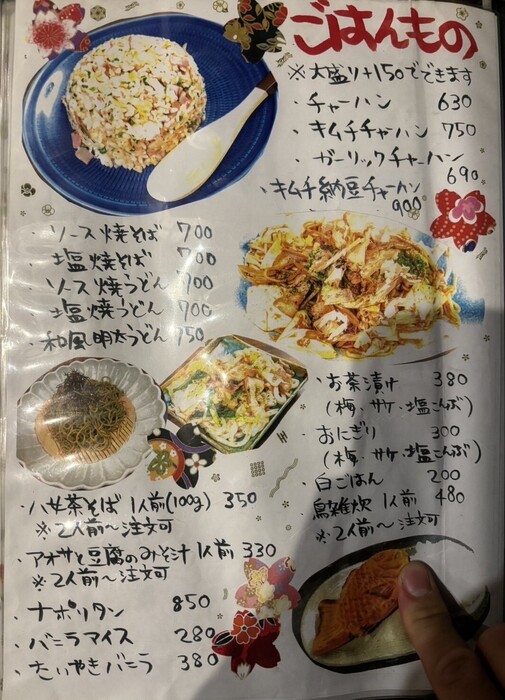 ごはんもの
※大盛り+150でできます
・チャーハン 630
・キムチチャーハン 750
・ガーリックチャーハン
690
・キムチ納豆チャーハン
900
・ソース焼そば 700
・塩焼そば 700
・ソース焼うどん 700
・塩焼うどん 700
・和風明太うどん 750
・お茶漬け 380
(梅、サケ、塩こんぶ)
・おにぎり 300
(梅、サケ、塩こんぶ)
・白ごはん 200
・鳥雑炊 1人前 480
※2人前〜注文可
・八女茶そば 1人前(100g) 350
※2人前〜注文可
・アオサと豆腐のみそ汁 1人前 330
※2人前〜注文可
・ナポリタン 850
・バニラアイス 280
・たいやきバニラ 380